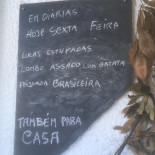 EM DIARIAS
HOJE SEXTA FEIRA
LULAS ESTUFADAS
LOMBO ASSADO COM BATATA
FEIJOADA BRASILEIRA
TAMBÉM PARA
CASA